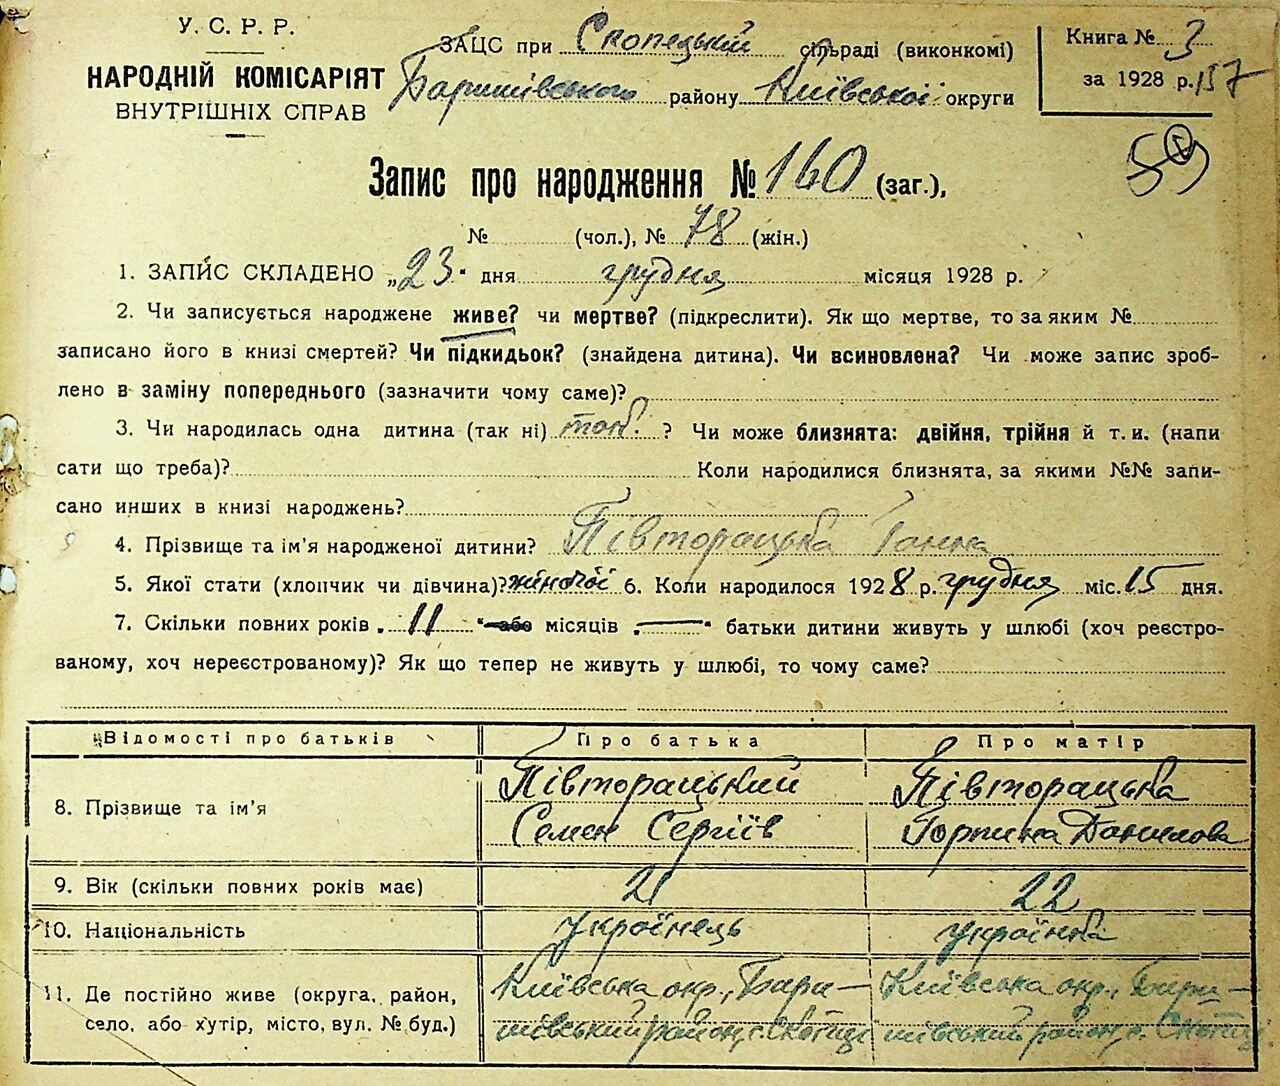 У. С. Р. Р.
НАРОДНІЙ КОМІСАРІЯТ
ВНУТРІШНІХ СПРАВ
ЗАЦС при Скопецький сільраді (виконкомі)
Баришівського району Київської округи
Книга № 3
за 1928 р. 157
59
Запис про народження № 160 (заг.),
№ (чол.), № 78 (жін.)
1. ЗАПИС СКЛАДЕНО „23" дня грудня місяця 1928 р.
2. Чи записується народжене живе? чи мертве? (підкреслити). Як що мертве, то за яким №
записано його в книзі смертей? Чи підкидьок? (знайдена дитина). Чи всиновлена? Чи може запис зроб-
лено в заміну попереднього (зазначити чому саме)?
3. Чи народилась одна дитина (так ні) ? Чи може близнята: двійня, трійня й т. и. (напи
сати що треба)? Коли народилися близнята, за якими №№ запи-
сано инших в книзі народжень?
4. Прізвище та ім'я народженої дитини? Півторацька Ганна
5. Якої стати (хлопчик чи дівчина)? жіночої 6. Коли народилося 1928 р. грудня міс. 15 дня.
7. Скільки повних років „11" або місяців „—" батьки дитини живуть у шлюбі (хоч реєстро-
ваному, хоч нереєстрованому)? Як що тепер не живуть у шлюбі, то чому саме?
Відомості про батьків Про батька Про матір
8. Прізвище та ім'я Півторацький Семен Сергіїв Півторацька Горпина Данилова
9. Вік (скільки повних років має) 21 22
10. Національність Українець українка
11. Де постійно живе (округа, район, Київська окр., Бари- Київська окр., Бари-
село, або хутір, місто, вул. № буд.) шівський район, с. Скопці шівський район, с. Скопці